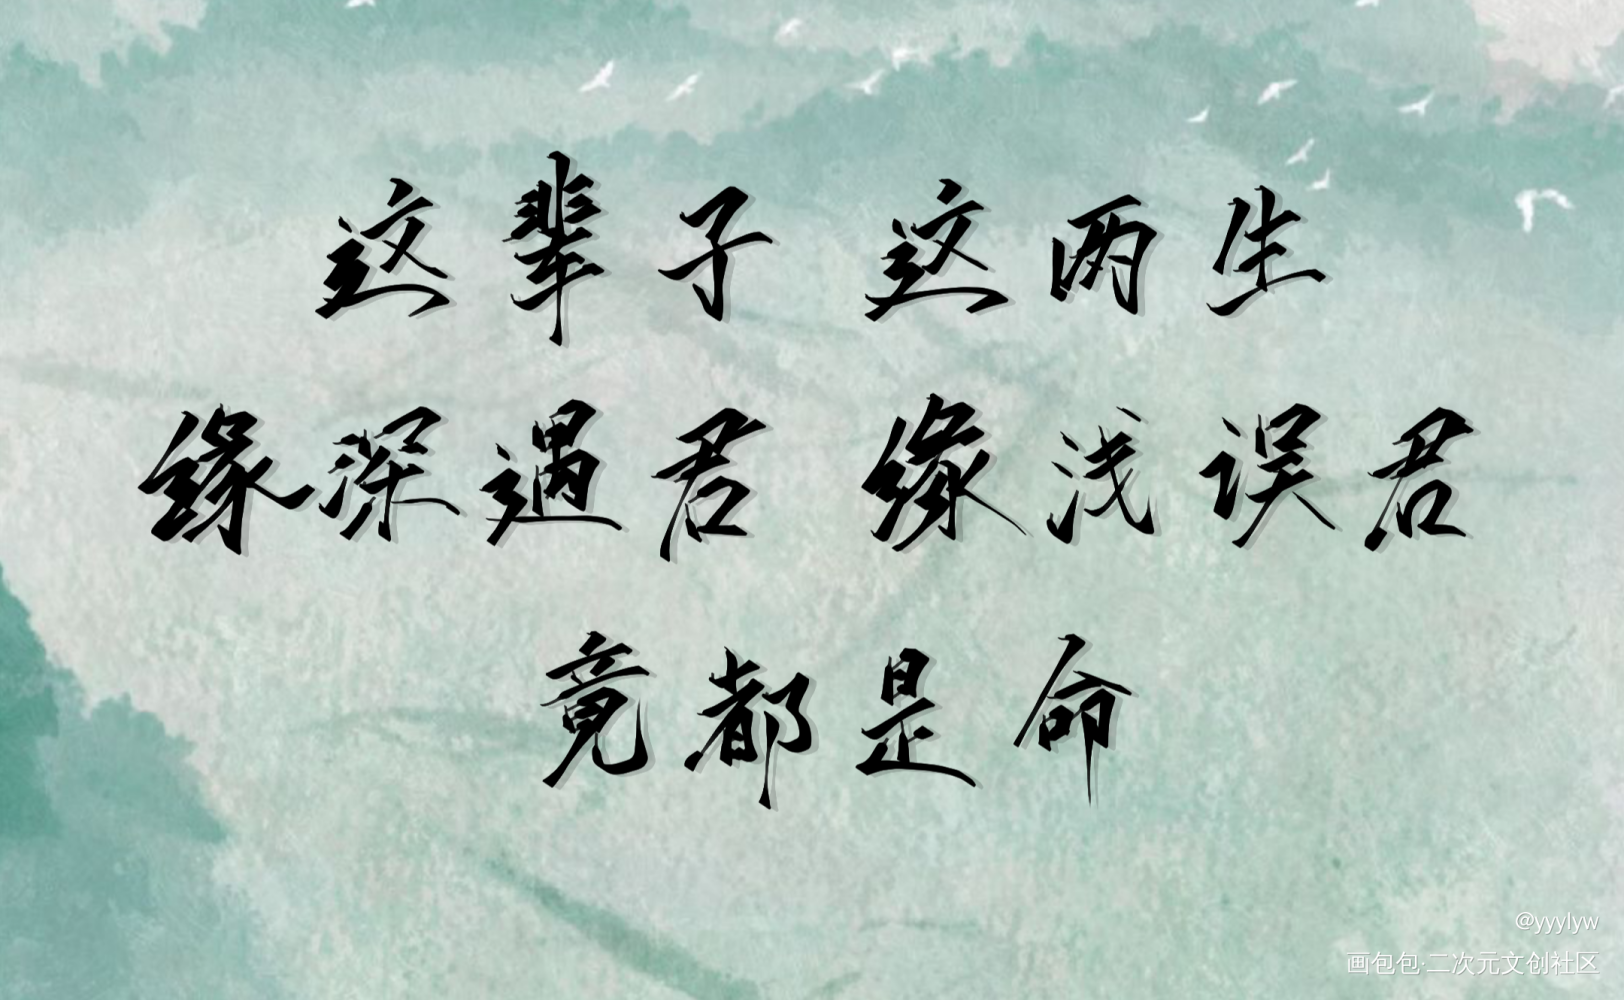 这辈子 这两生
缘深遇君 缘浅误君
竟都是命
@yyylyw
画包包·二次元文创社区